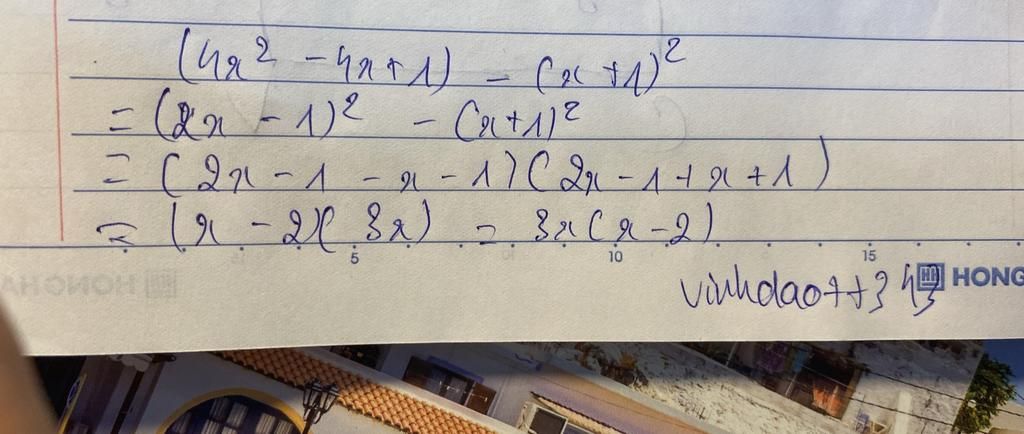 (4x² - 4x + 1) - (x + 1)²
= (2x - 1)² - (x + 1)²
= (2x - 1 - x - 1)(2x - 1 + x + 1)
= (x - 2)(3x) = 3x(x - 2)
5 10 15
HONG HA HONG